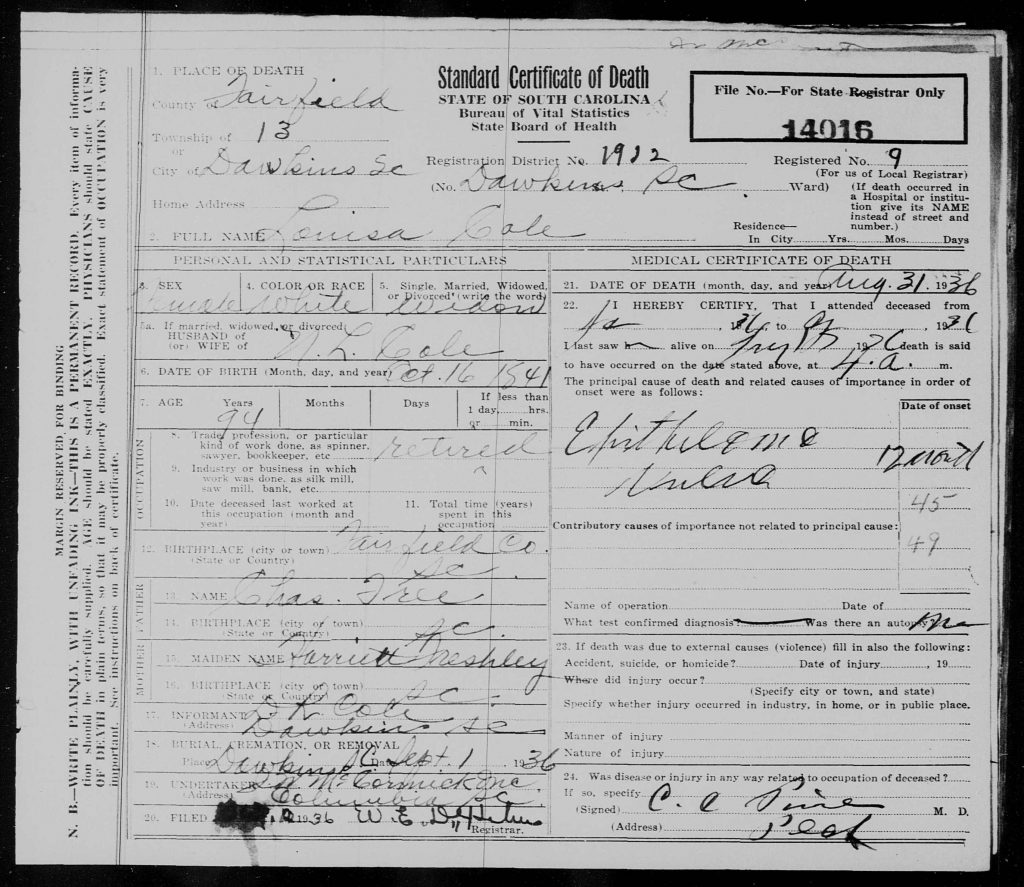 Standard Certificate of Death
STATE OF SOUTH CAROLINA
Bureau of Vital Statistics
State Board of Health
File No.—For State Registrar Only
14016
1. PLACE OF DEATH
County of Fairfield
Township of 13
or
City of Dawkins SC
Home Address
2. FULL NAME Louisa Cole
Registration District No. 1912
Registered No. 9
(For us of Local Registrar)
(No. Dawkins SC Ward)
(If death occurred in
a Hospital or institu-
tion give its NAME
instead of street and
number.)
Residence—
In City Yrs. Mos. Days
PERSONAL AND STATISTICAL PARTICULARS
3. SEX
Female
4. COLOR OR RACE
White
5. Single, Married, Widowed,
or Divorced (write the word)
Widow
5a. If married, widowed, or divorced
HUSBAND of
(or) WIFE of
N. L. Cole
6. DATE OF BIRTH (Month, day, and year) Oct. 16 1841
7. AGE Years Months Days If less than
1 day, hrs.
or min.
94
OCCUPATION
8. Trade, profession, or particular
kind of work done, as spinner,
sawyer, bookkeeper, etc. retired
9. Industry or business in which
work was done, as silk mill,
saw mill, bank, etc.
10. Date deceased last worked at
this occupation (month and
year)
11. Total time (years)
spent in this
occupation
12. BIRTHPLACE (city or town) Fairfield Co.
(State or Country) SC.
FATHER
13. NAME Chas. Free
14. BIRTHPLACE (city or town)
(State or Country) SC.
MOTHER
15. MAIDEN NAME Harriett
16. BIRTHPLACE (city or town)
(State or Country) SC.
17. INFORMANT D K Cole
(Address) Dawkins SC
18. BURIAL, CREMATION, OR REMOVAL
Place Dawkins SC Date Sept. 1 1936
19. UNDERTAKER McCormick Inc.
(Address) Columbia SC
20. FILED 1936 W. E.
Registrar.
MEDICAL CERTIFICATE OF DEATH
21. DATE OF DEATH (month, day, and year) Aug. 31. 1936
22. I HEREBY CERTIFY, That I attended deceased from
, 1936 to 1936
I last saw h alive on 1936 death is said
to have occurred on the date stated above, at 4. a. m.
The principal cause of death and related causes of importance in order of
onset were as follows:
Date of onset
Epithelioma
Vulva
12 month
45
Contributory causes of importance not related to principal cause:
49
Name of operation Date of
What test confirmed diagnosis? Was there an autopsy? no
23. If death was due to external causes (violence) fill in also the following:
Accident, suicide, or homicide? Date of injury , 19
Where did injury occur?
(Specify city or town, and state)
Specify whether injury occurred in industry, in home, or in public place.
Manner of injury
Nature of injury
24. Was disease or injury in any way related to occupation of deceased?
If so, specify
(Signed) C. C M. D.
(Address) Peak
MARGIN RESERVED FOR BINDING
N. B.—WRITE PLAINLY, WITH UNFADING INK—THIS IS A PERMANENT RECORD. Every item of informa-
tion should be carefully supplied. AGE should be stated EXACTLY. PHYSICIANS should state CAUSE
OF DEATH in plain terms, so that it may be properly classified. Exact statement of OCCUPATION is very
important. See instructions on back of certificate.